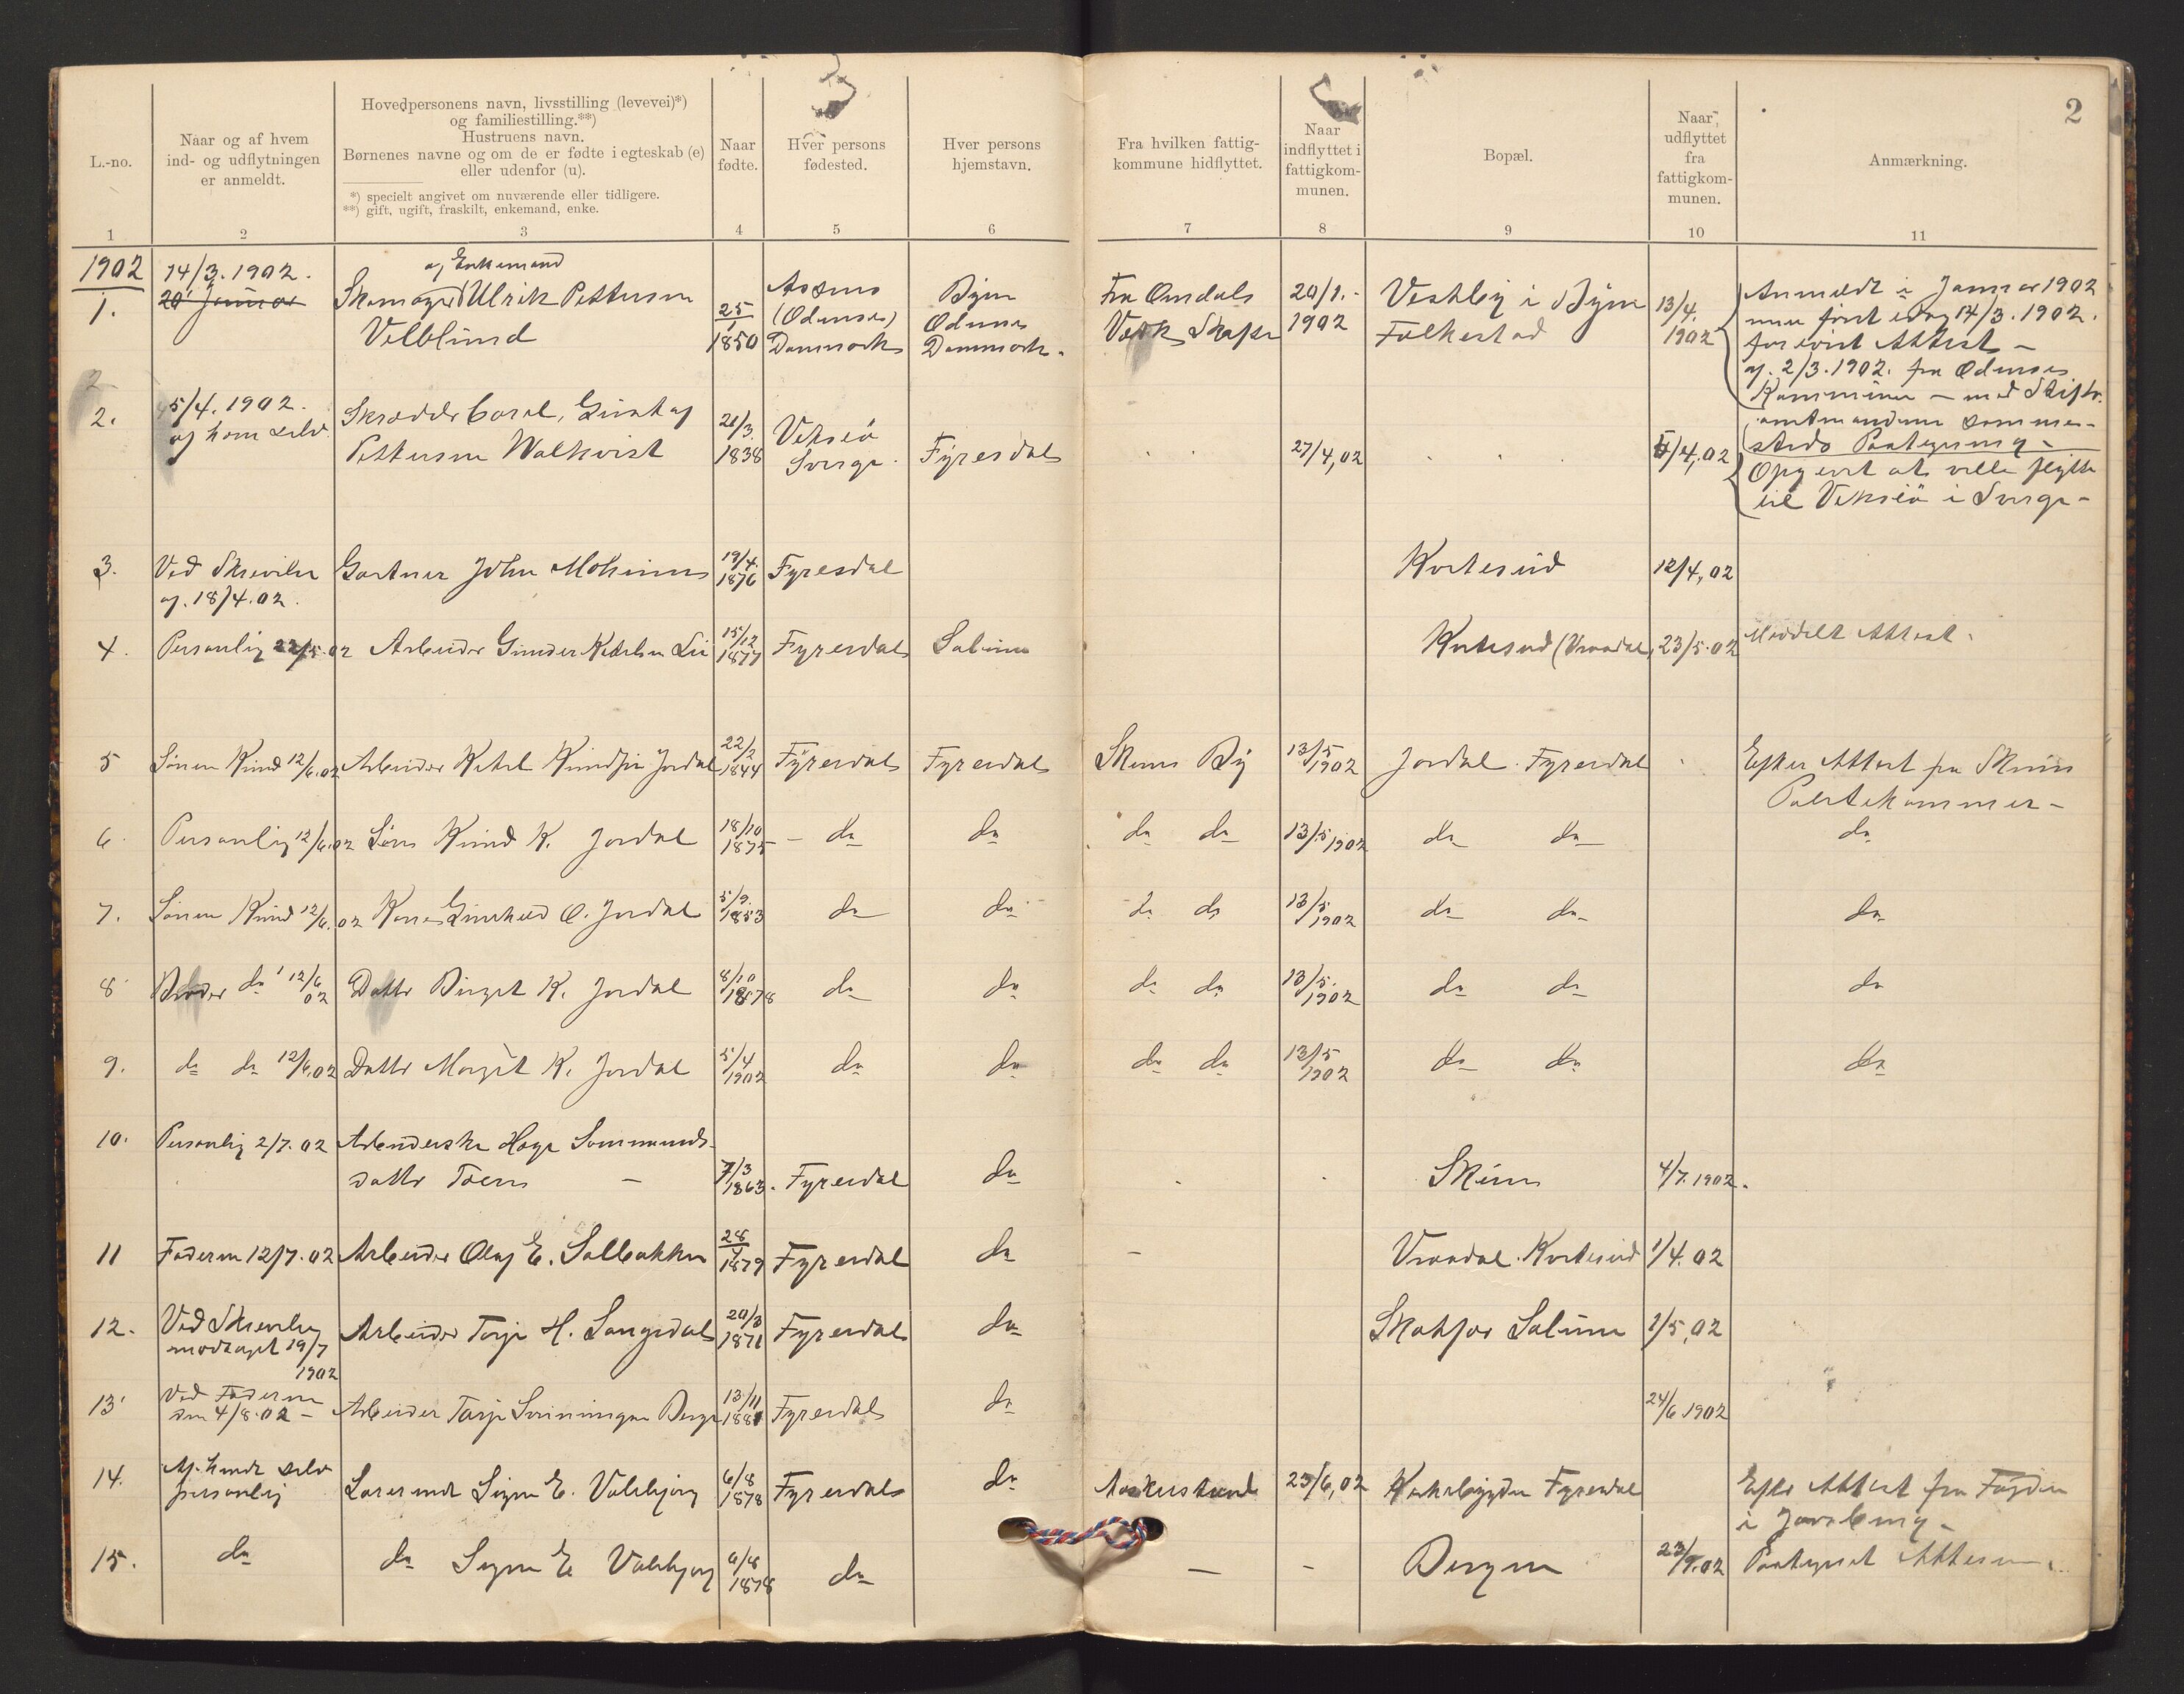 2
L.-no.
Naar og af hvem
ind- og udflytningen
er anmeldt.
Hovedpersonens navn, livsstilling (levevei)*)
og familiestilling.**)
Hustruens navn.
Børnenes navne og om de er fødte i egteskab (e)
eller udenfor (u).
*) specielt angivet om nuværende eller tidligere.
**) gift, ugift, fraskilt, enkemand, enke.
Naar
fødte.
Hver persons
fødested.
Hver persons
hjemstavn.
Fra hvilken fattig-
kommune hidflyttet.
Naar
indflyttet i
fattigkom-
munen.
Bopæl.
Naar
udflyttet
fra
fattigkom-
munen.
Anmærkning.
1 2 3 4 5 6 7 8 9 10 11
1902
1.
14/3. 1902.
20 Januar
og Enkemand
Skomager Ulrik Pettersen
Velblund
25/1
1850
Assens
(Odense)
Danmark
Byen
Odense
Danmark.
Fra Omdals
Værk Skafse
20/1.-
1902
Vestby i Byen
Folkestad
13/4.
1902
Anmeldt i Januar 1902
men først idag 14/3. 1902.
forevist Attest –
af. 2/3. 1902. fra Odense
Kommune – med Stifts-
amtmandens sammen-
steds Paategning –
2
2.
5/4. 1902.
af ham selv.
Skrædder Carl, Gustaf
Pettersen Walkvist
21/3.
1838
Veksiö
Sverge.
Fyresdal
27/4, 02
5/4, 02
Opgivet at ville flytte
til Veksiö i Sverge –
3.
Ved Skrivelse
af. 18/4. 02.
Gartner John Moheim
19/4.
1876
Fyresdal
Kviteseid
12/4, 02
4.
Personlig 22/5. 02
Arbeider Gunder Ketilsen Lii
15/12
1877
Fyresdal
Solum
Kvitesed (Vraadal)
23/5. 02
Meddelt Attest.
5
Sönen Knud 12/6. 02
Arbeider Ketil Knudsen Jordal
22/2
1844
Fyresdal
Fyresdal
Skiens By
13/5
1902
Jordal Fyresdal
Efter Attest fra Skiens
Politikammer –
6
Personlig 12/6. 02
Söns Knud K. Jordal
18/10
1875
– do
do
do do
13/5 1902
do do
do
7.
Sönen Knud 12/6. 02
Kone Gunhild O. Jordal
5/9.
1853
do
do
do do
13/5
1902
do do
do
8
Broder do 12/6 02
Datter Birgit K. Jordal
8/10
1878
do
do
do do
13/5.
1902
do do
do
9.
do do 12/6. 02
Datter Margit K. Jordal
5/4
1902
do
do
do do
13/5
1902
do do
do
10.
Personlig 2/7. 02
Arbeiderske Hæge Sommunds-
datter Toens –
7/3
1863.
Fyresdal
do
Skien
4/7. 1902.
11
Faderen 12/7. 02
Arbeider Olaf E. Solbakken
28/4
1879
Fyresdal
do
–
Vraadal. Kvitesed
1/4. 02
12.
Ved Skrivelse
modtaget 19/7
1902
Arbeider Torje H. Langsdal
20/3
1871
Fyresdal
do
Skotfos Solum
1/5, 02
13
Ved Faderen
den 4/8. 02 –
Arbeider Tarje Sveinungsen Berge
13/11
1881
Fyresdal
do
24/6 1902
14.
Af hende selv
personlig
Lærerinde Signe E. Valebjørg
6/8
1878
Fyresdal
do
23/6, 02
Kirkebygden Fyresdal
Efter Attest fra Fogden
i Jarlsberg –
15.
do
do Signe E Valebjørg
6/8
1878
do
–
–
Bergen
23/9. 02
Paategnet Attesten.